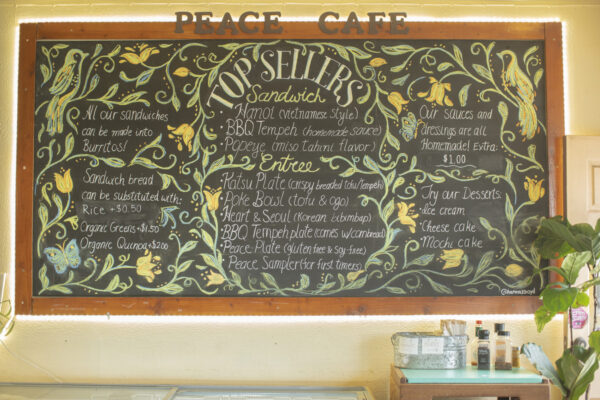 PEACE CAFE
TOP SELLERS
All our sandwiches
can be made into
Burritos!
Sandwich bread
can be substituted with:
Rice +$0.50
Organic Greens +$1.50
Organic Quinoa +$2.00
Sandwich
Hanoi (vietnamese style)
BBQ Tempeh (homemade sauce)
Popeye (miso tahini flavor)
Entree
Katsu Plate (crispy breaded tofu/tempeh)
Poke Bowl (tofu & ogo)
Heart & Seoul (Korean bibimbap)
BBQ Tempeh plate (comes w/cornbread)
Peace Plate (gluten free & soy-free)
Peace Sampler (for first timers)
Our sauces and
dressings are all
Homemade! Extra:
$1.00
Try our Desserts:
Ice cream
Cheese cake
Mochi cake